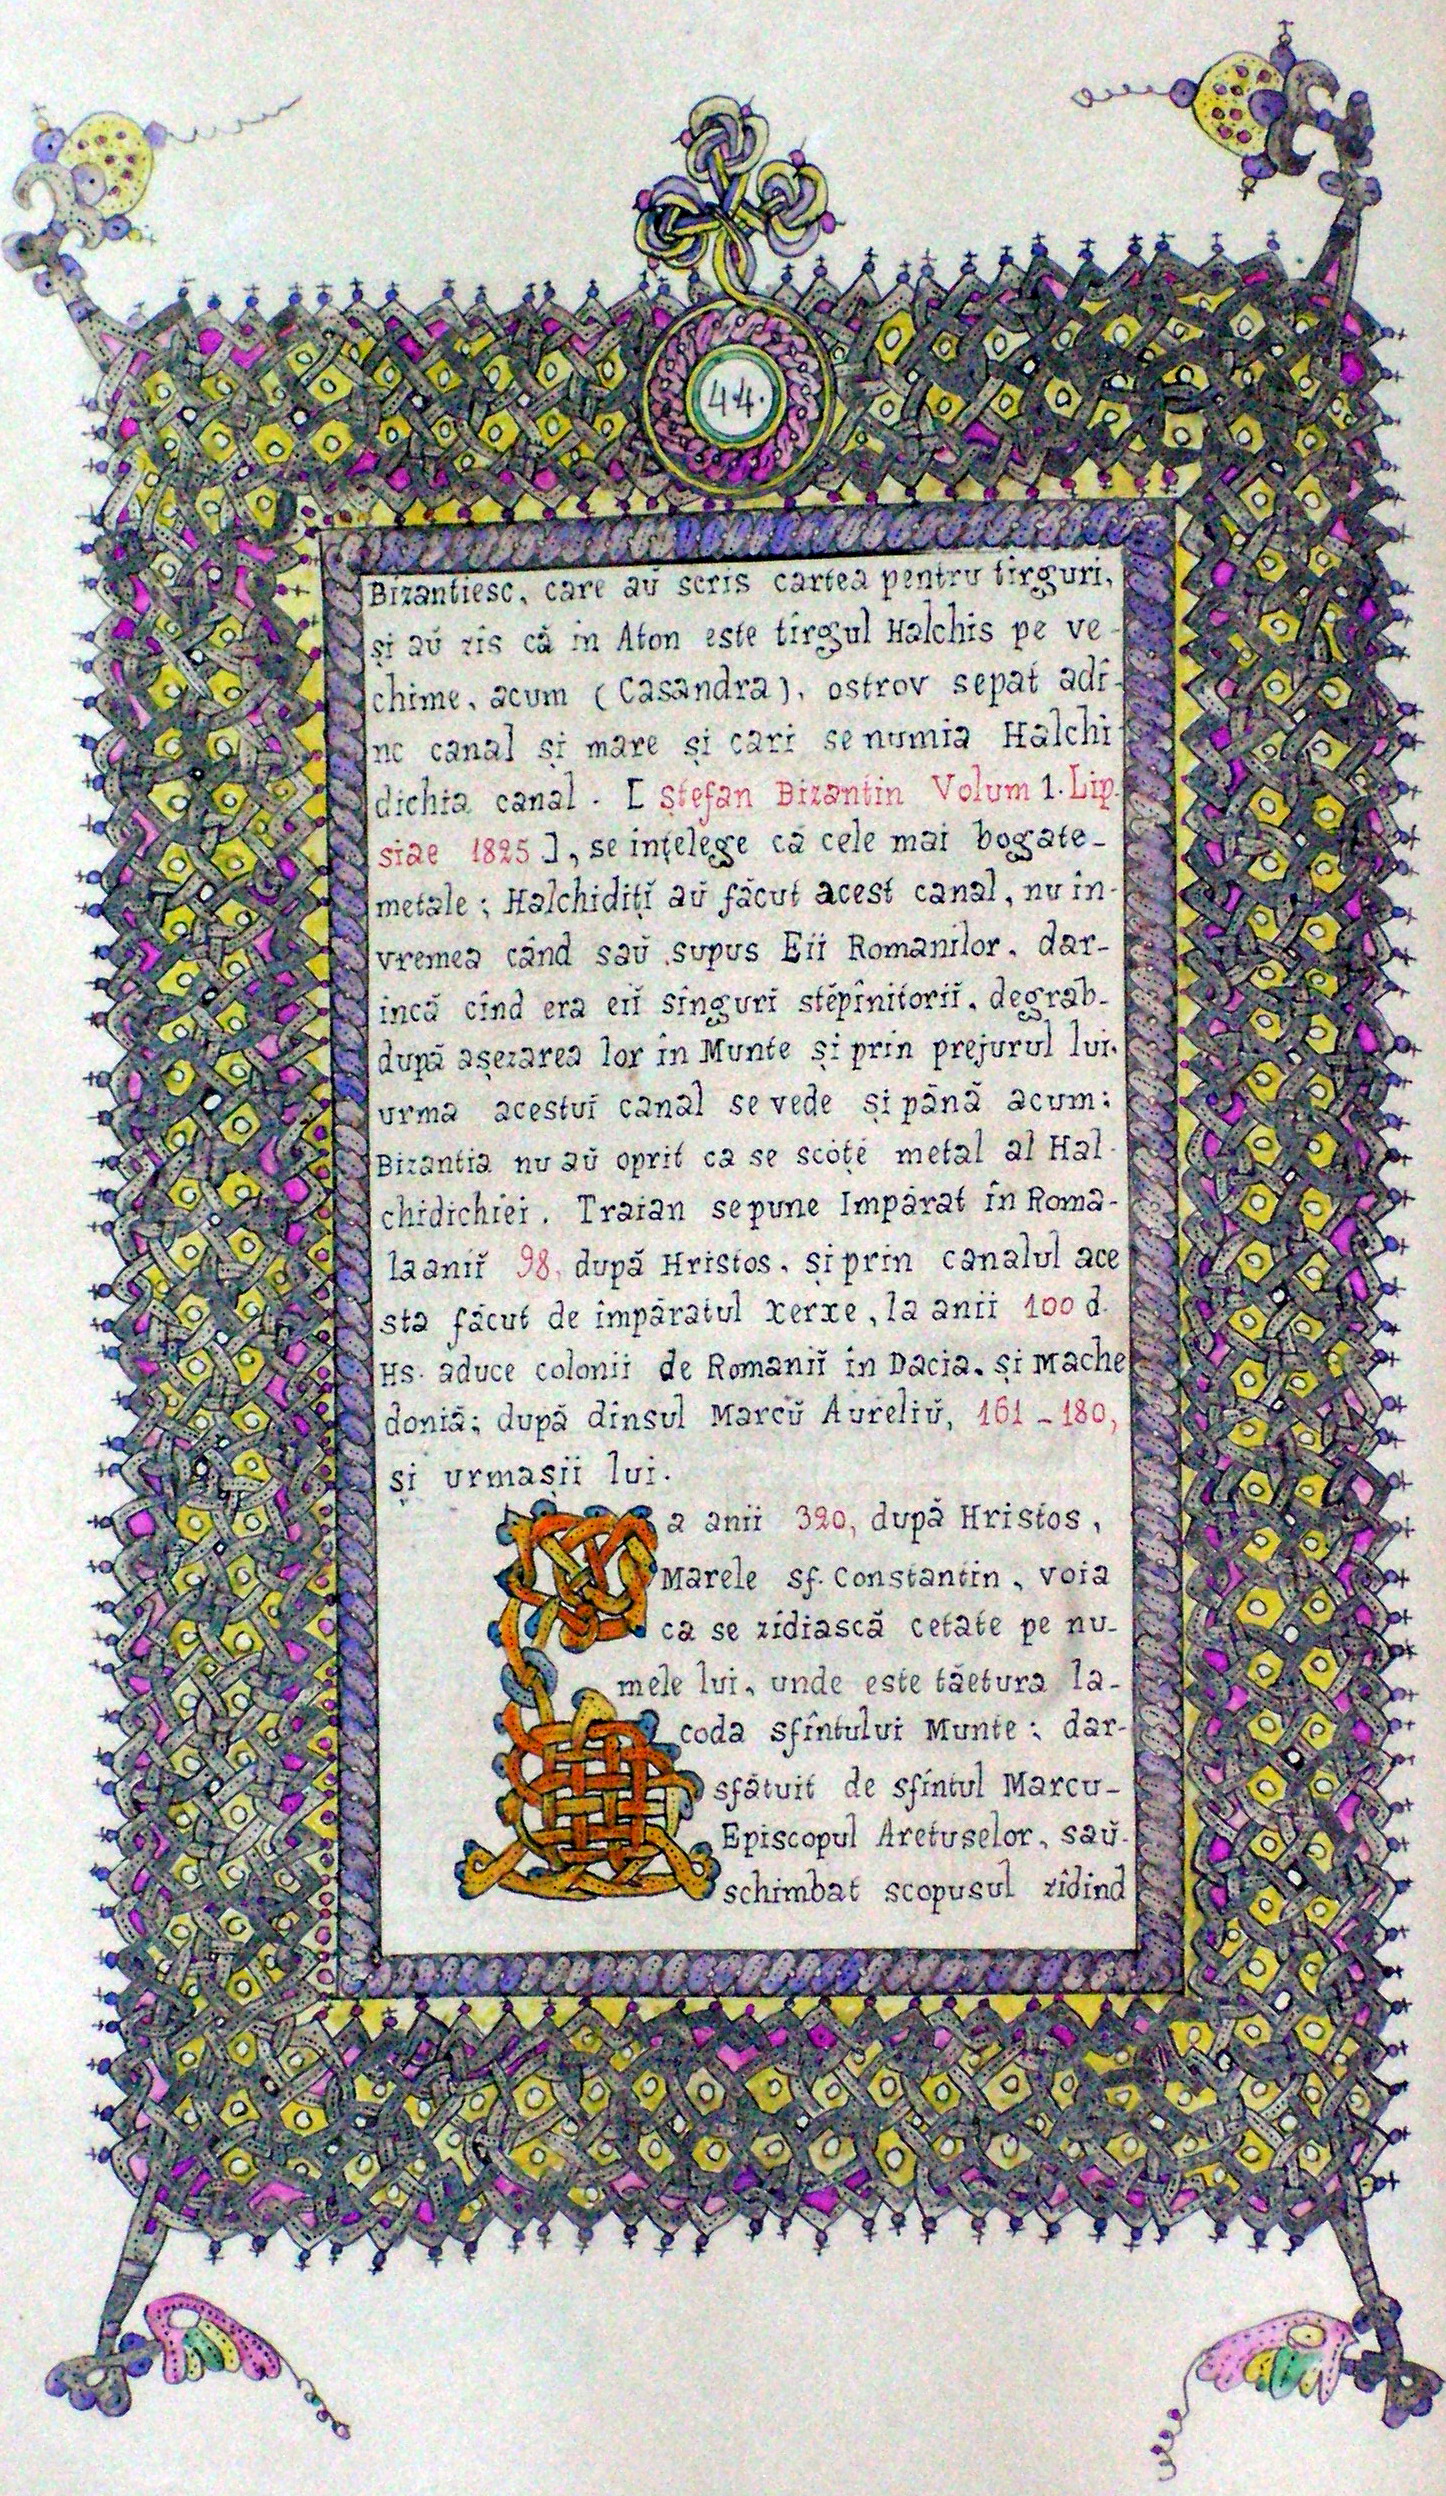 44.
Bizantiesc, care aŭ scris cartea pentru tirguri,
și aŭ zis că in Aton este tîrgul Halchis pe ve-
chime, acum (Casandra), ostrov sepat adî-
nc canal și mare și cari se numia Halchi-
dichia canal. [ Ștefan Bizantin Volum 1. Lip-
siae 1825 ], se ințelege că cele mai bogate-
metale; Halchidițĭ aŭ făcut acest canal, nu în-
vremea când saŭ supus Eii Romanilor, dar-
incă cînd era eiĭ sînguri stĕpînitoriĭ, degrab-
după așezarea lor în Munte și prin prejurul lui,
urma acestuĭ canal se vede și până acum;
Bizantia nu aŭ oprit ca se scoțe metal al Hal-
chidichiei. Traian se pune Impărat în Roma-
la aniĭ 98, după Hristos, și prin canalul ace
sta făcut de împăratul xerxe, la anii 100 d.
Hs. aduce colonii de Romaniĭ în Dacia, și Mache
doniă; după dînsul Marcŭ Aureliŭ, 161-180,
și urmașii lui.
La anii 320, după Hristos,
Marele sf. Constantin, voia
ca se zidiască cetate pe nu-
mele lui, unde este tăetura la-
coda sfîntului Munte; dar-
sfătuit de sfîntul Marcu-
Episcopul Aretuselor, saŭ-
schimbat scopusul zidind